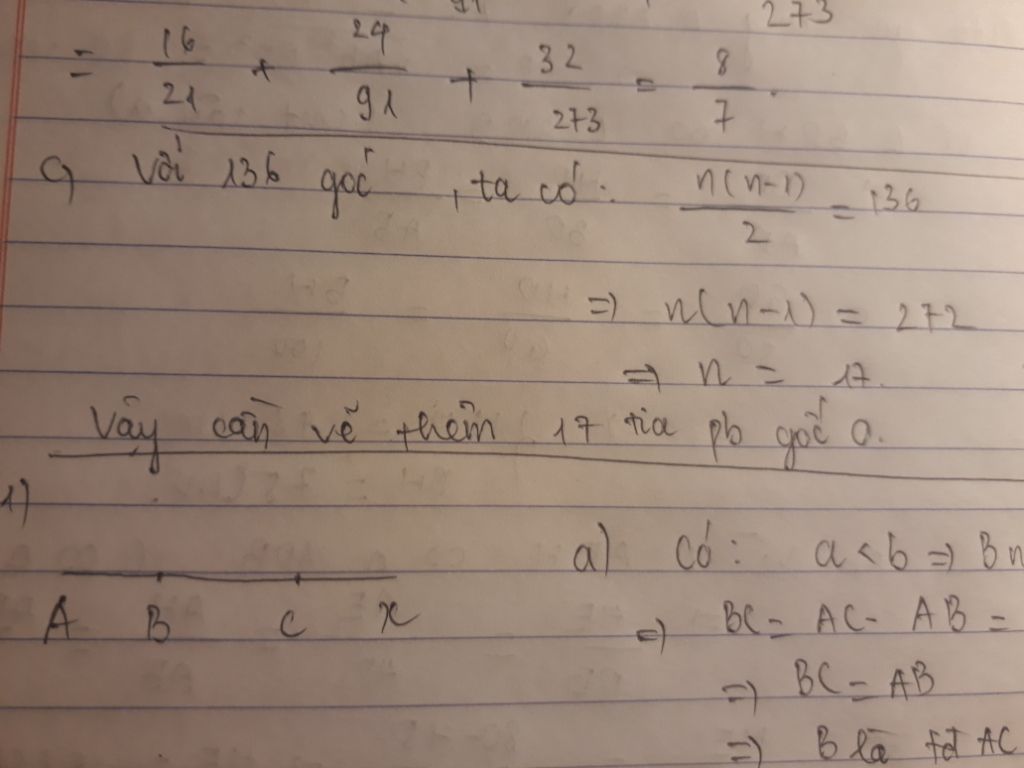 273
= 16/21 + 24/91 + 32/273 = 8/7.
c) Với 136 góc, ta có: n(n-1)/2 = 136
=> n(n-1) = 272
=> n = 17.
Vậy cần vẽ thêm 17 tia pb gốc O.
1)
a) Có: a < b => B n
A B C x
=> BC = AC - AB =
=> BC = AB
=> B là tđ AC